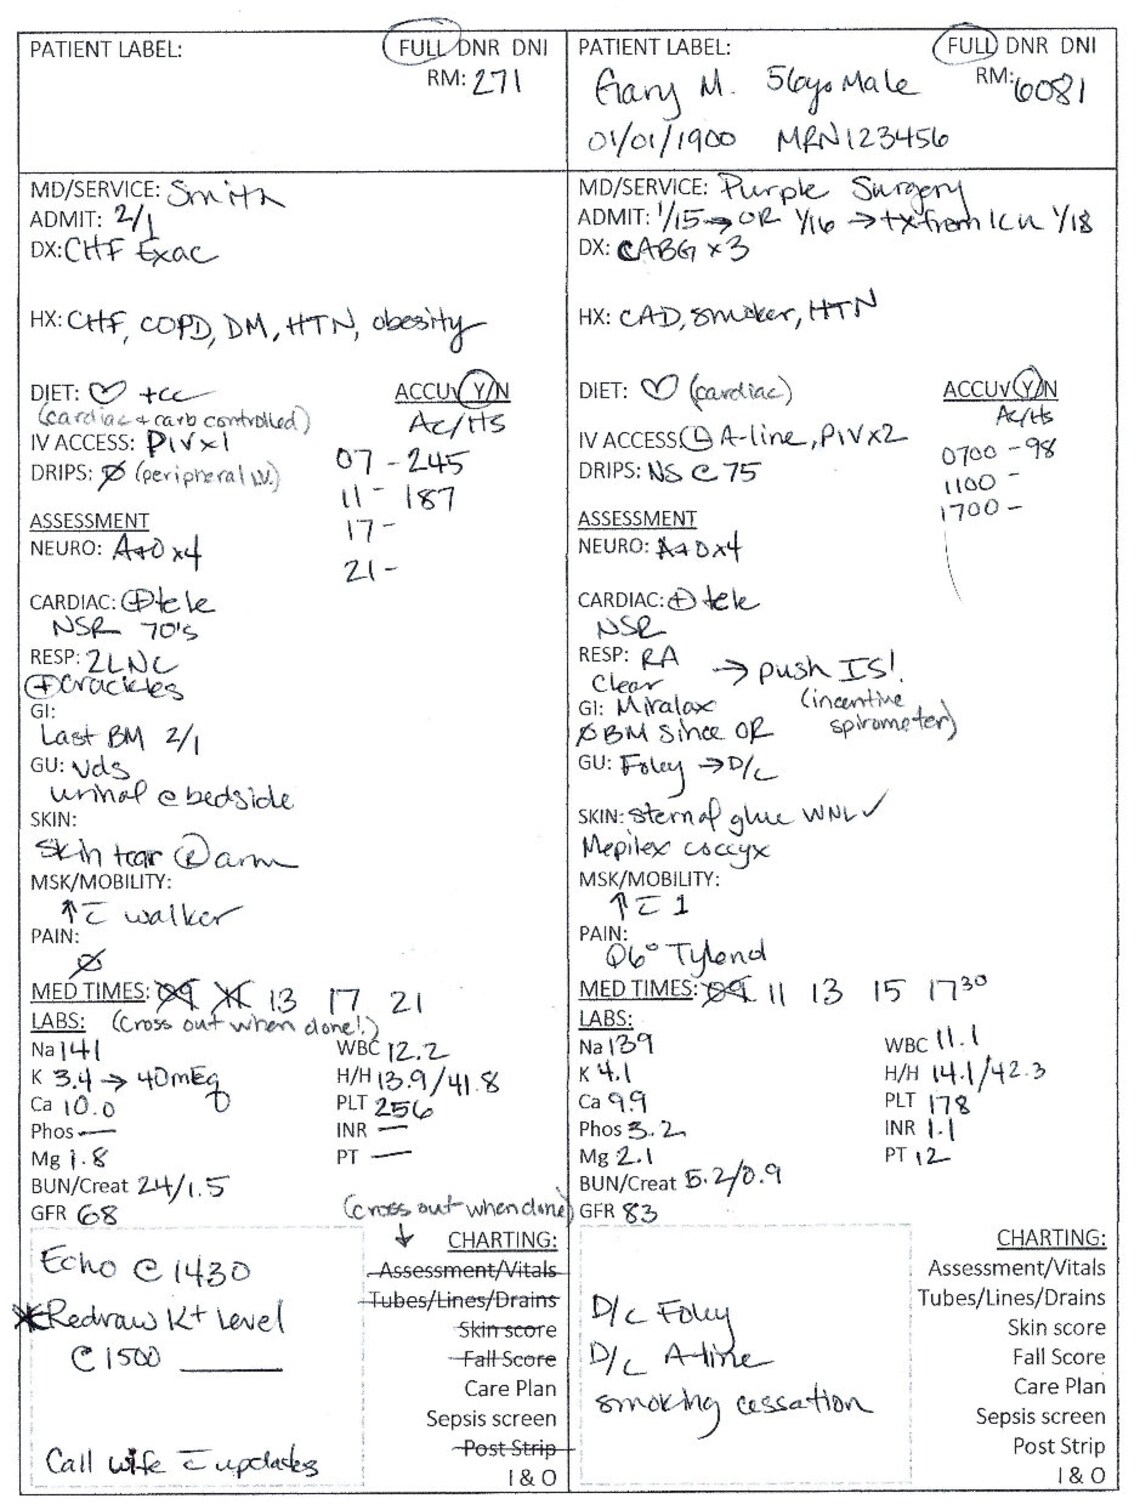 PATIENT LABEL: FULL DNR DNI
RM: 271
MD/SERVICE: Smith
ADMIT: 2/1
DX: CHF Exac
HX: CHF, COPD, DM, HTN, obesity
DIET: ♡ + cc ACCU√ Y/N
(cardiac + carb controlled) Ac/Hs
IV ACCESS: PIV x1
07 - 245
DRIPS: Ø (peripheral I.V.)
11 - 187
ASSESSMENT
17 -
NEURO: A+O x4
21 -
CARDIAC: ⊕ tele
NSR 70's
RESP: 2LNC
⊕ crackles
GI:
Last BM 2/1
GU: vds
urinal @ bedside
SKIN:
Skin tear Ⓡ arm
MSK/MOBILITY:
↑ c̄ walker
PAIN:
Ø
MED TIMES: 09 11 13 17 21
LABS: (Cross out when done!)
Na 141 WBC 12.2
K 3.4 → 40mEq H/H 13.9/41.8
Ca 10.0 PLT 256
Phos — INR —
Mg 1.8 PT —
BUN/Creat 24/1.5
GFR 68
(cross out when done)
↓ CHARTING:
Echo @ 1430
Redraw K+ Level
@ 1500 ______
Call wife c̄ updates
Assessment/Vitals
Tubes/Lines/Drains
Skin score
Fall Score
Care Plan
Sepsis screen
Post Strip
I & O
PATIENT LABEL: FULL DNR DNI
Gary M. 56yo Male RM: 6081
01/01/1900 MRN123456
MD/SERVICE: Purple Surgery
ADMIT: 1/15 → OR 1/16 → tx from ICU 1/18
DX: CABG x 3
HX: CAD, smoker, HTN
DIET: ♡ (cardiac) ACCU√ Y/N
Ac/Hs
IV ACCESS: Ⓛ A-line, PIV x2
0700 - 98
DRIPS: NS @ 75
1100 -
1700 -
ASSESSMENT
NEURO: A+O x4
CARDIAC: ⊕ tele
NSR
RESP: RA → push IS!
Clear (incentive spirometer)
GI: Miralax
Ø BM since OR
GU: Foley → D/c
SKIN: sternal glue WNL ✓
Mepilex coccyx
MSK/MOBILITY:
↑ c̄ 1
PAIN:
Q6° Tylenol
MED TIMES: 09 11 13 15 1730
LABS:
Na 139 WBC 11.1
K 4.1 H/H 14.1/42.3
Ca 9.9 PLT 178
Phos 3.2 INR 1.1
Mg 2.1 PT 12
BUN/Creat 5.2/0.9
GFR 83
CHARTING:
D/c Foley
D/c A-line
smoking cessation
Assessment/Vitals
Tubes/Lines/Drains
Skin score
Fall Score
Care Plan
Sepsis screen
Post Strip
I & O